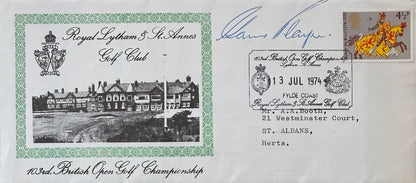 Royal Lytham & St. Annes
Golf Club
103rd. British Open Golf Championship
Gary Player
4½p
103rd. British Open Golf Championship
Lytham St. Annes
13 JUL 1974
FYLDE COAST
Royal Lytham & St. Annes Golf Club
Mr. A.A.Booth,
21 Westminster Court,
ST. ALBANS,
Herts.